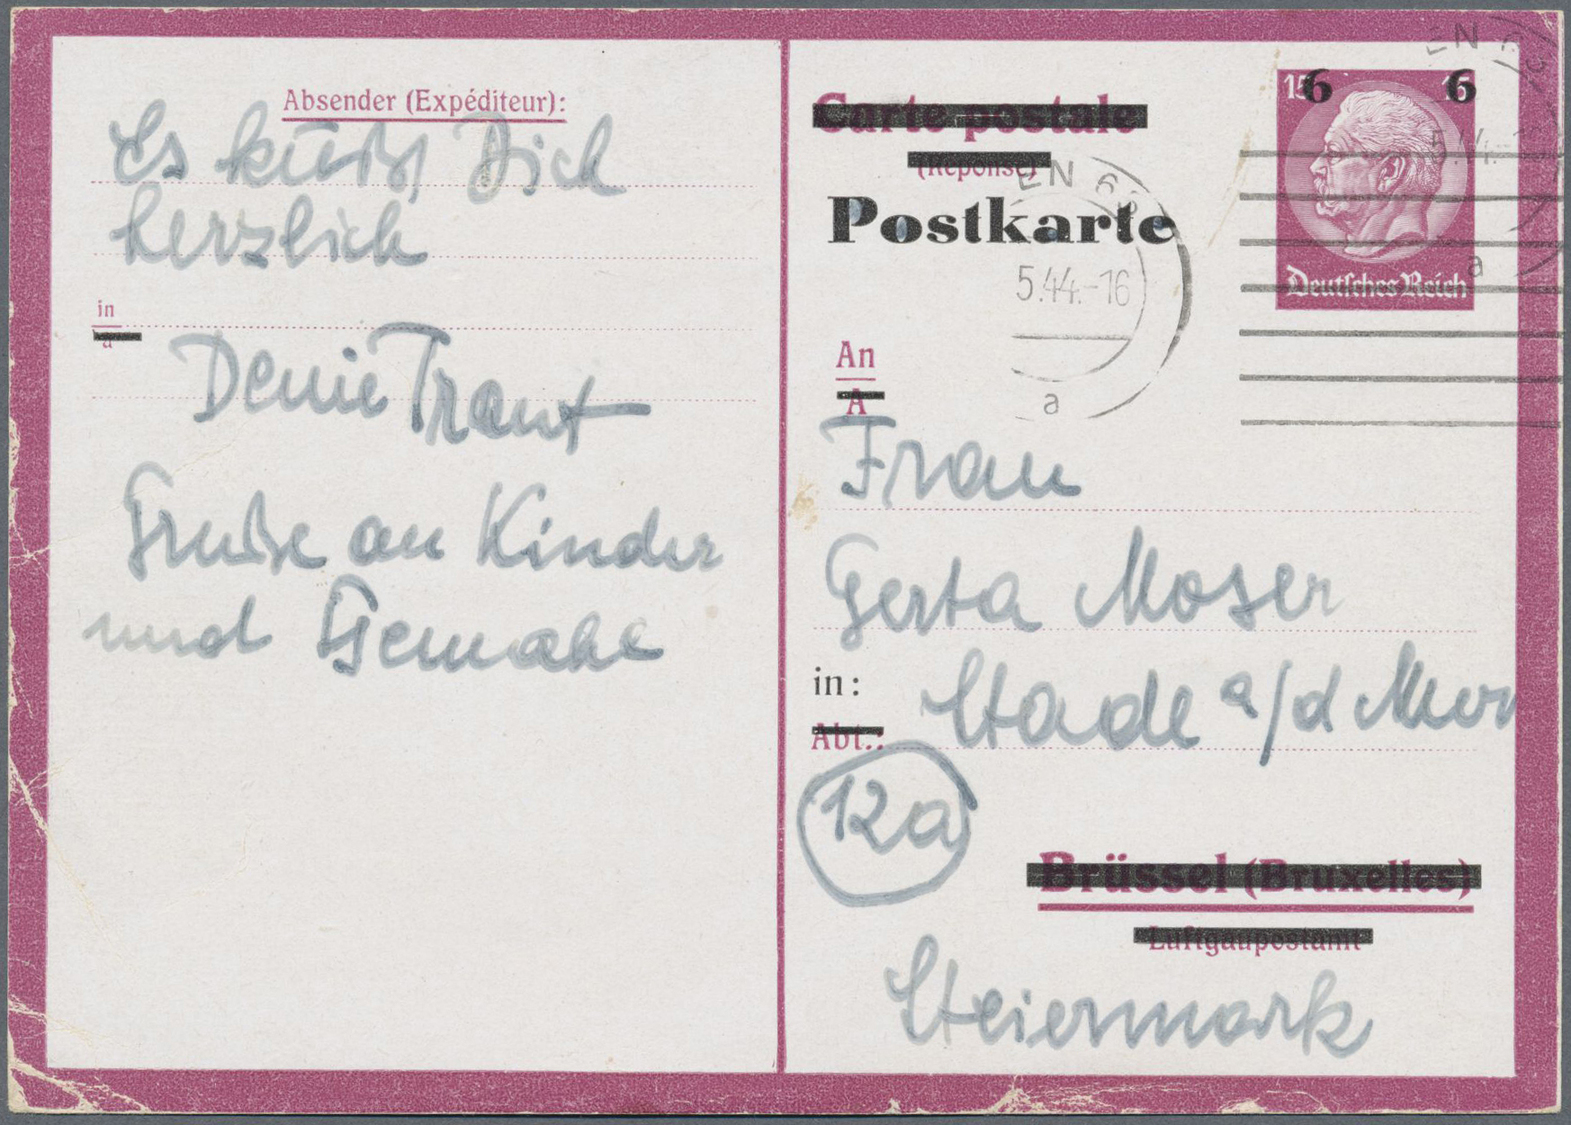 Absender (Expéditeur):
Es küßt Dich
herzlich
in
a
Deine Traut
Grüße an Kinder
und Gemahl
Carte postale
(Réponse)
Postkarte
EN 68
5.44.-16
a
15 6 15 6
Deutsches Reich
EN 6
5.44.-
a
An
A
Frau
Gerta Moser
in: Stade a/d Mur
Abt.:
12a
Brüssel (Bruxelles)
Luftgaupostamt
Steiermark